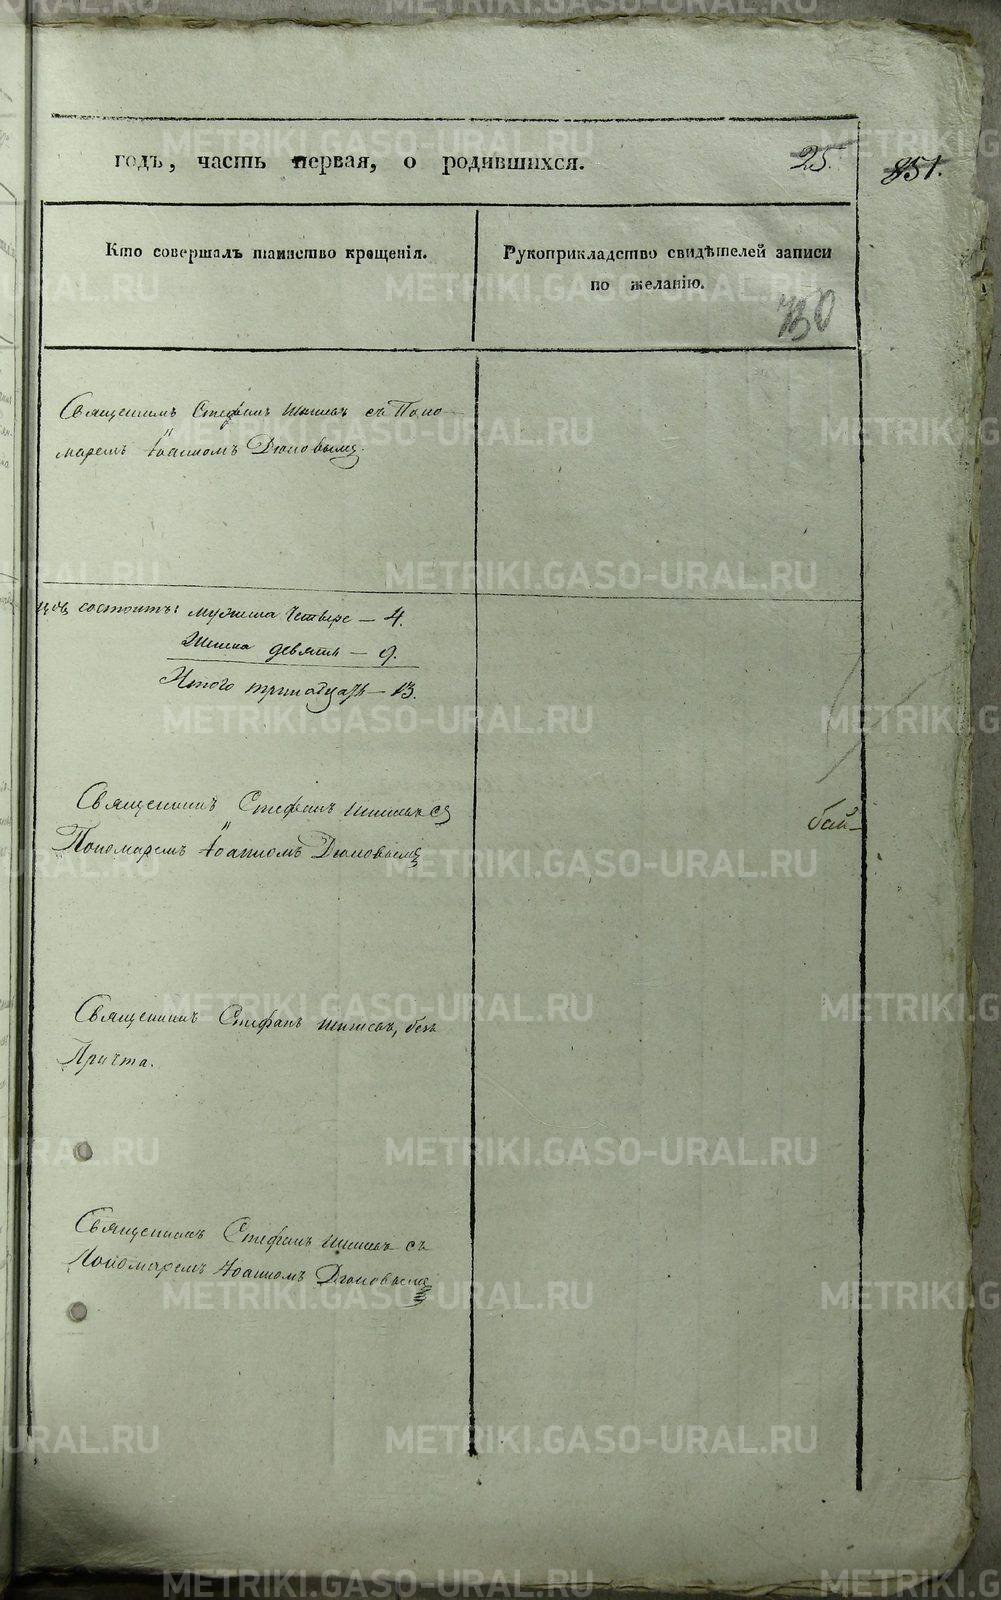 годъ, часть первая, о родившихся.
25.
851.
Кто совершалъ таинство крещенія.
Рукоприкладство свидѣтелей записи
по желанію.
Священникъ Стефанъ съ Поно-
маремъ Іоанномъ Дюновымъ.
состоитъ: мужеска четыре — 4.
Женска девять — 9.
Итого тринадцать — 13.
Священникъ Стефанъ съ
Пономаремъ Іоанномъ Дюновымъ
Священникъ Стефанъ безъ
Причта.
Священникъ Стефанъ съ
Пономаремъ Іоанномъ Дюновымъ
METRIKI.GASO-URAL.RU